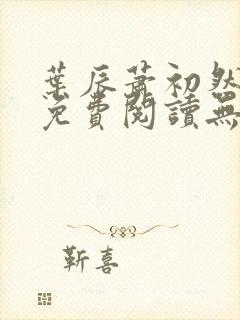 葉辰蕭初然
免費閱讀無
靳喜